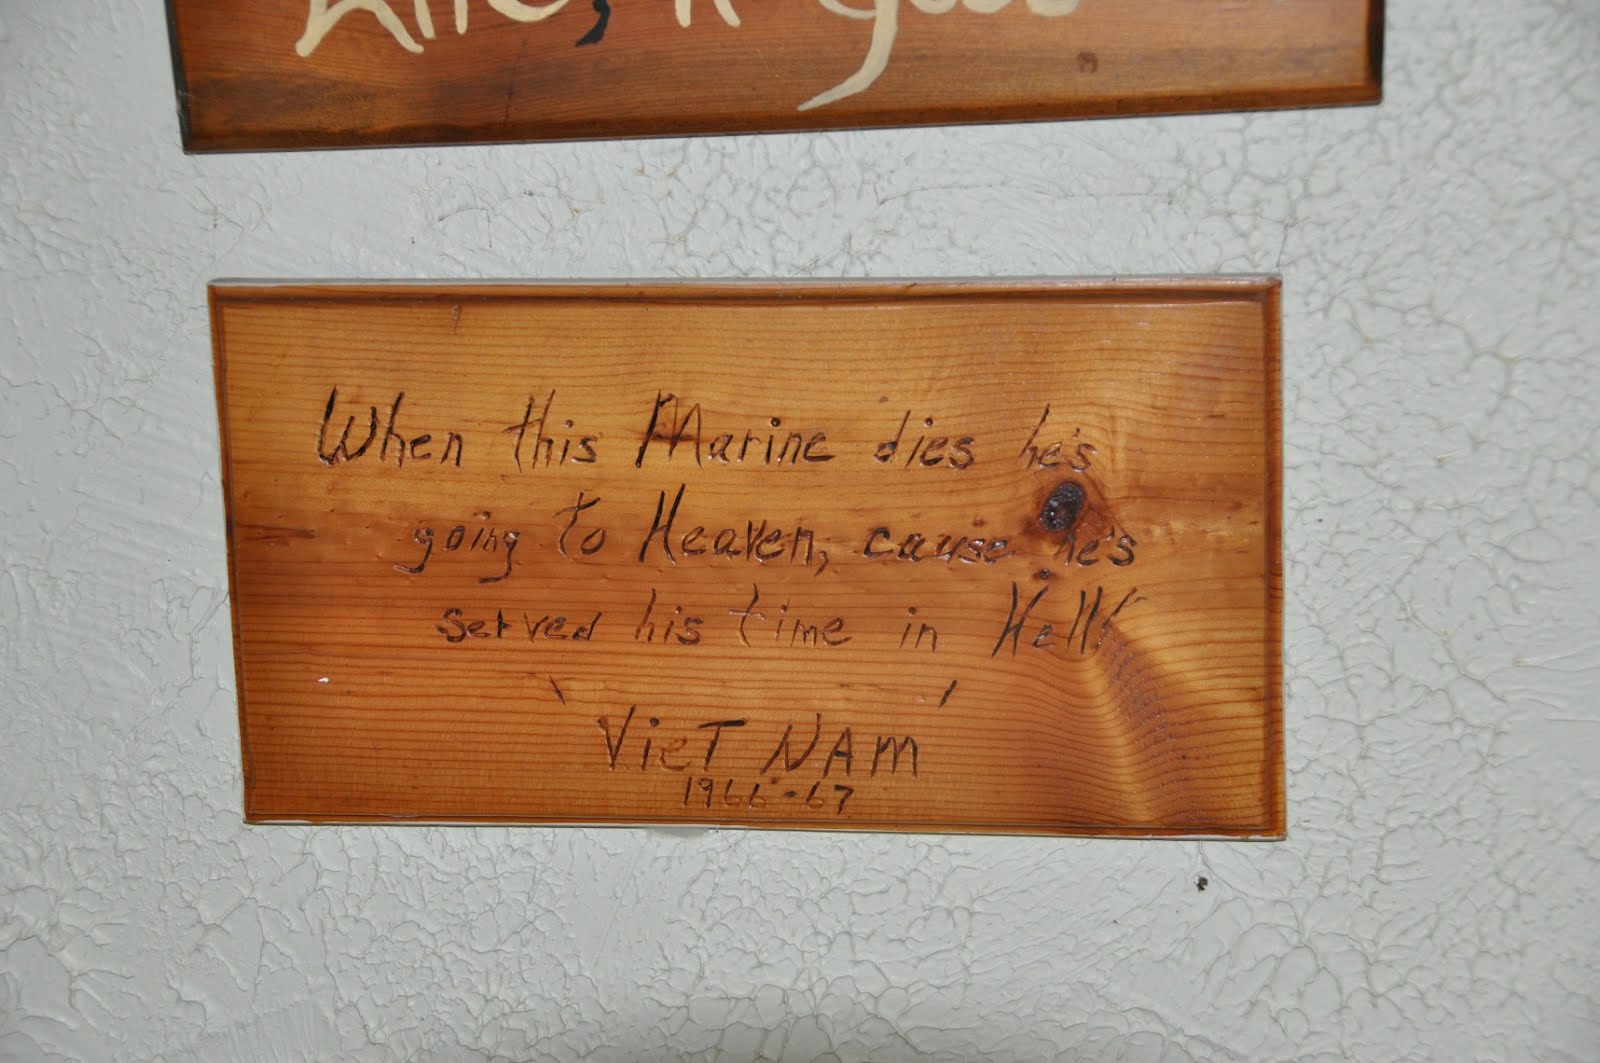 When this Marine dies he's
going to Heaven, cause he's
served his time in Hell!
' '
VieT NAM
1966-67